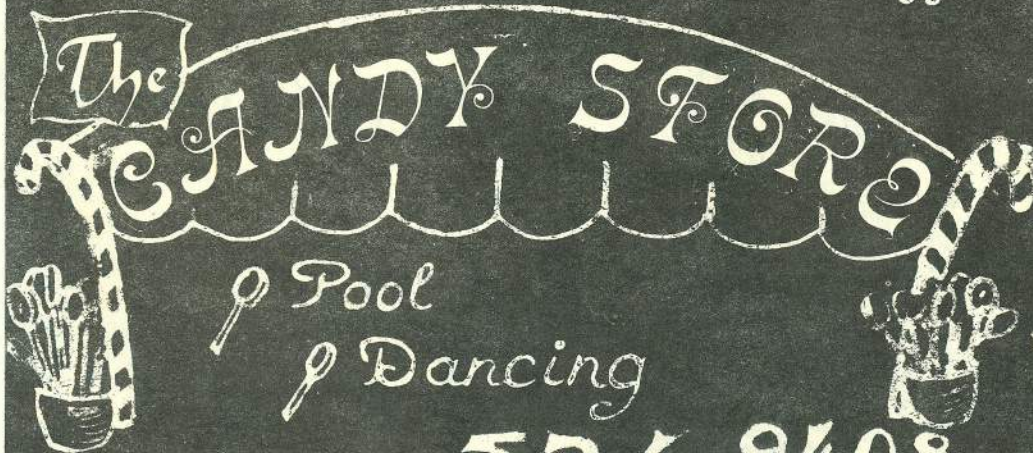 The
CANDY STORE
Pool
Dancing